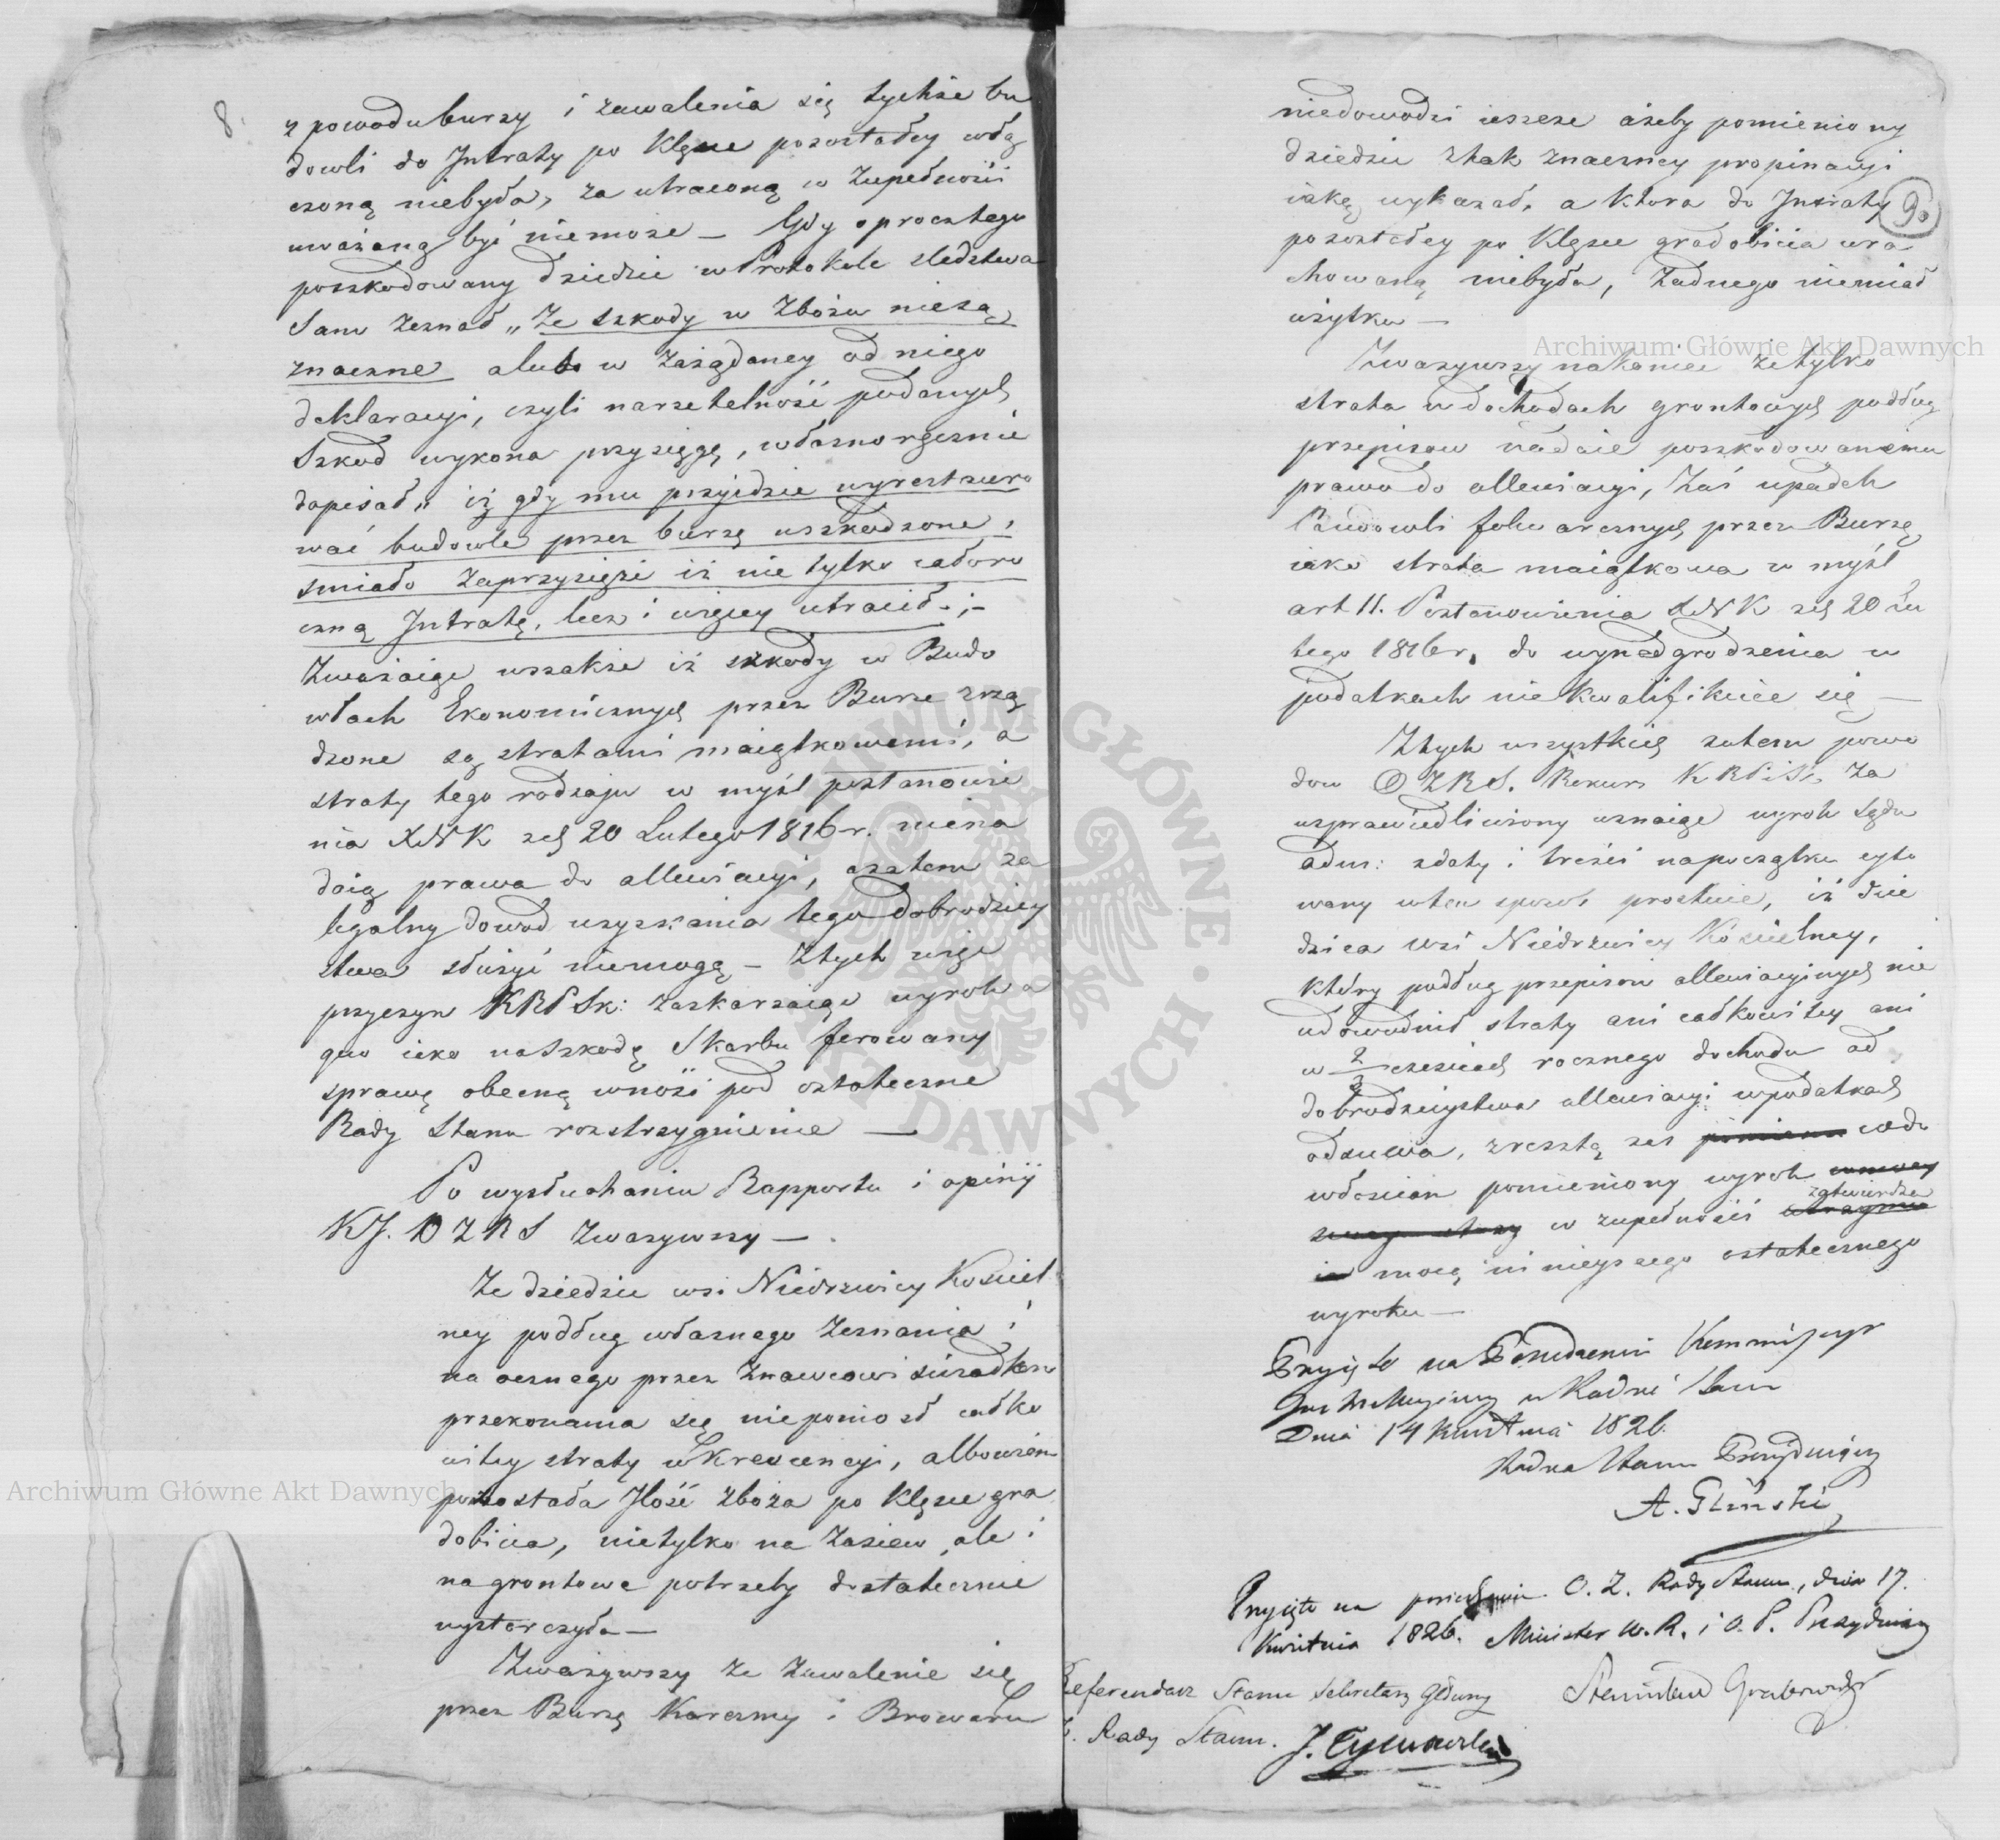 8.
z powodu burzy i zawalenia się tychże bu
dowli do Jntraty po Klęsce pozostałey włą
czoną niebyła, za utraconą w zupełności
uważaną być niemoże — Gdy oprocztego
poszkodowany dziedzic w Protokule sledztwa
Sam zeznał „Ze szkody w Zbożu niesą
znaczne alubo w zażądaney od niego
deklaracyi, czyli narzetelność podanych
Szkod wykona przysięgę, własnoręcznie
dopisał „ iż gdy mu przyidzie wyrestauro
wać budowle przez burzę uszkodzone,
smiało zaprzysięże iż nie tylko całoro
czną Jntratę, lecz i więcey utracił.;—
Zważaiąc wszakże iż szkody w Budo
wlach Ekonomicznych przez Burze zrzą
dzone są stratami maiątkowemi, a
straty tego rodzaju w myśl postanowie
nia XNK z d 20 Lutego 1816 r. niena
daią prawa do allewiacyi, azatem za
legalny dowod uzyskania tego dobrodziey
stwa służyć niemogą — Z tych więc
przyczyn KRPSk: zaskarżaiąc wyrok a
quo iako naszkodę Skarbu ferowany
sprawę obecną wnosi pod ostateczne
Rady Stanu rozstrzygnienie —
Po wysłuchaniu Rapportu i opinij
KJ. OZRS zważywszy —
Ze dziedzic wsi Niedrzwicy Kościel
ney podług własnego zeznania i
naocznego przez znawcow i świadkow
przekonania się nieponiosł całko
witey straty w Krescencyi, albowiem
pozostała Jlość zboża po Klęsce gra
dobicia, nietylko na zasiew, ale i
na grontowe potrzeby dostatecznie
wystarczyła —
Zważywszy że zawalenie się
przez Burzę Karczmy i Browaru
90
niedowodzi ieszcze ażeby pomieniony
dziedzic z tak znaczney propinacyi
iaką wykazał, a ktora do Jntraty
pozostałey po Klęsce gradobicia wra
chowaną niebyła, żadnego niemiał
użytku —
Zważywszy nakoniec że tylko
strata w dochodach grontowych podług
przepisow nadaie poszkodowanemu
prawo do allewiacyi, zaś upadek
Budowli folwarcznych przez Burzę
iako strata maiątkowa w myśl
art 11. Postanowienia XNK z d 20 Lu
tego 1816 r. do wynadgrodzenia w
podatkach nie kwalifikuie się —
Z tych wszystkich zatem powo
dow OZRS. Rekurs KRPiSk. za
usprawiedliwiony uznaiąc wyrok Sądu
adm: z daty i treści napoczątku cyto
wany wten sposob prostuie, iż dzie
dzica wsi Niedrzwicy Kościelney,
który podług przepisow allewiacyinych nie
udowodnił straty ani całkowitey ani
w 2/3 częściach rocznego dochodu od
dobrodzieystwa allewiacyi w podatkach
odsuwa, zresztą zaś codo
włościan pomieniony wyrok
w zupełności zatwierdza
mocą ninieyszego ostatecznego
wyroku —
Przyięto na Posiedzeniu Kommissyi
Jnstrukcyiney w Radzie Stanu
Dnia 14 Kwietnia 1826.
Radca Stanu Prezyduiący
A. Gliński
Przyięto na posiedzeniu O. Z. Rady Stanu, dnia 17.
Kwietnia 1826. Minister W. R. i O. P. Prezyduiący
Stanisław Grabowski
Referendarz Stanu Sekretarz Główny
Rady Stanu. J. Tymowski
Archiwum Główne Akt Dawnych
Archiwum Główne Akt Dawnych
ARCHIWUM GŁÓWNE AKT DAWNYCH